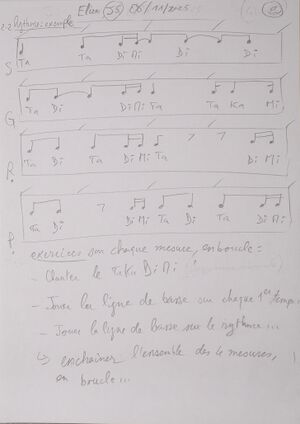 Elian (55) 06/11/2025
2-2 Rythme: exemple
S Ta Ta Di Mi Di Di
G Ta Di Di Mi Ta Ta Ka Mi
R. Ta Di Ta Di Mi Ta Di Mi
P. Ta Di Di Mi Ta Di Ta Di Mi
exercices sur chaque mesure, en boucle =
- Chanter le TaKa Di Mi
- Jouer la ligne de basse sur chaque 1er temps
- Jouer la ligne de basse sur le rythme...
↳ enchaîner l'ensemble des 4 mesures,
en boucle...